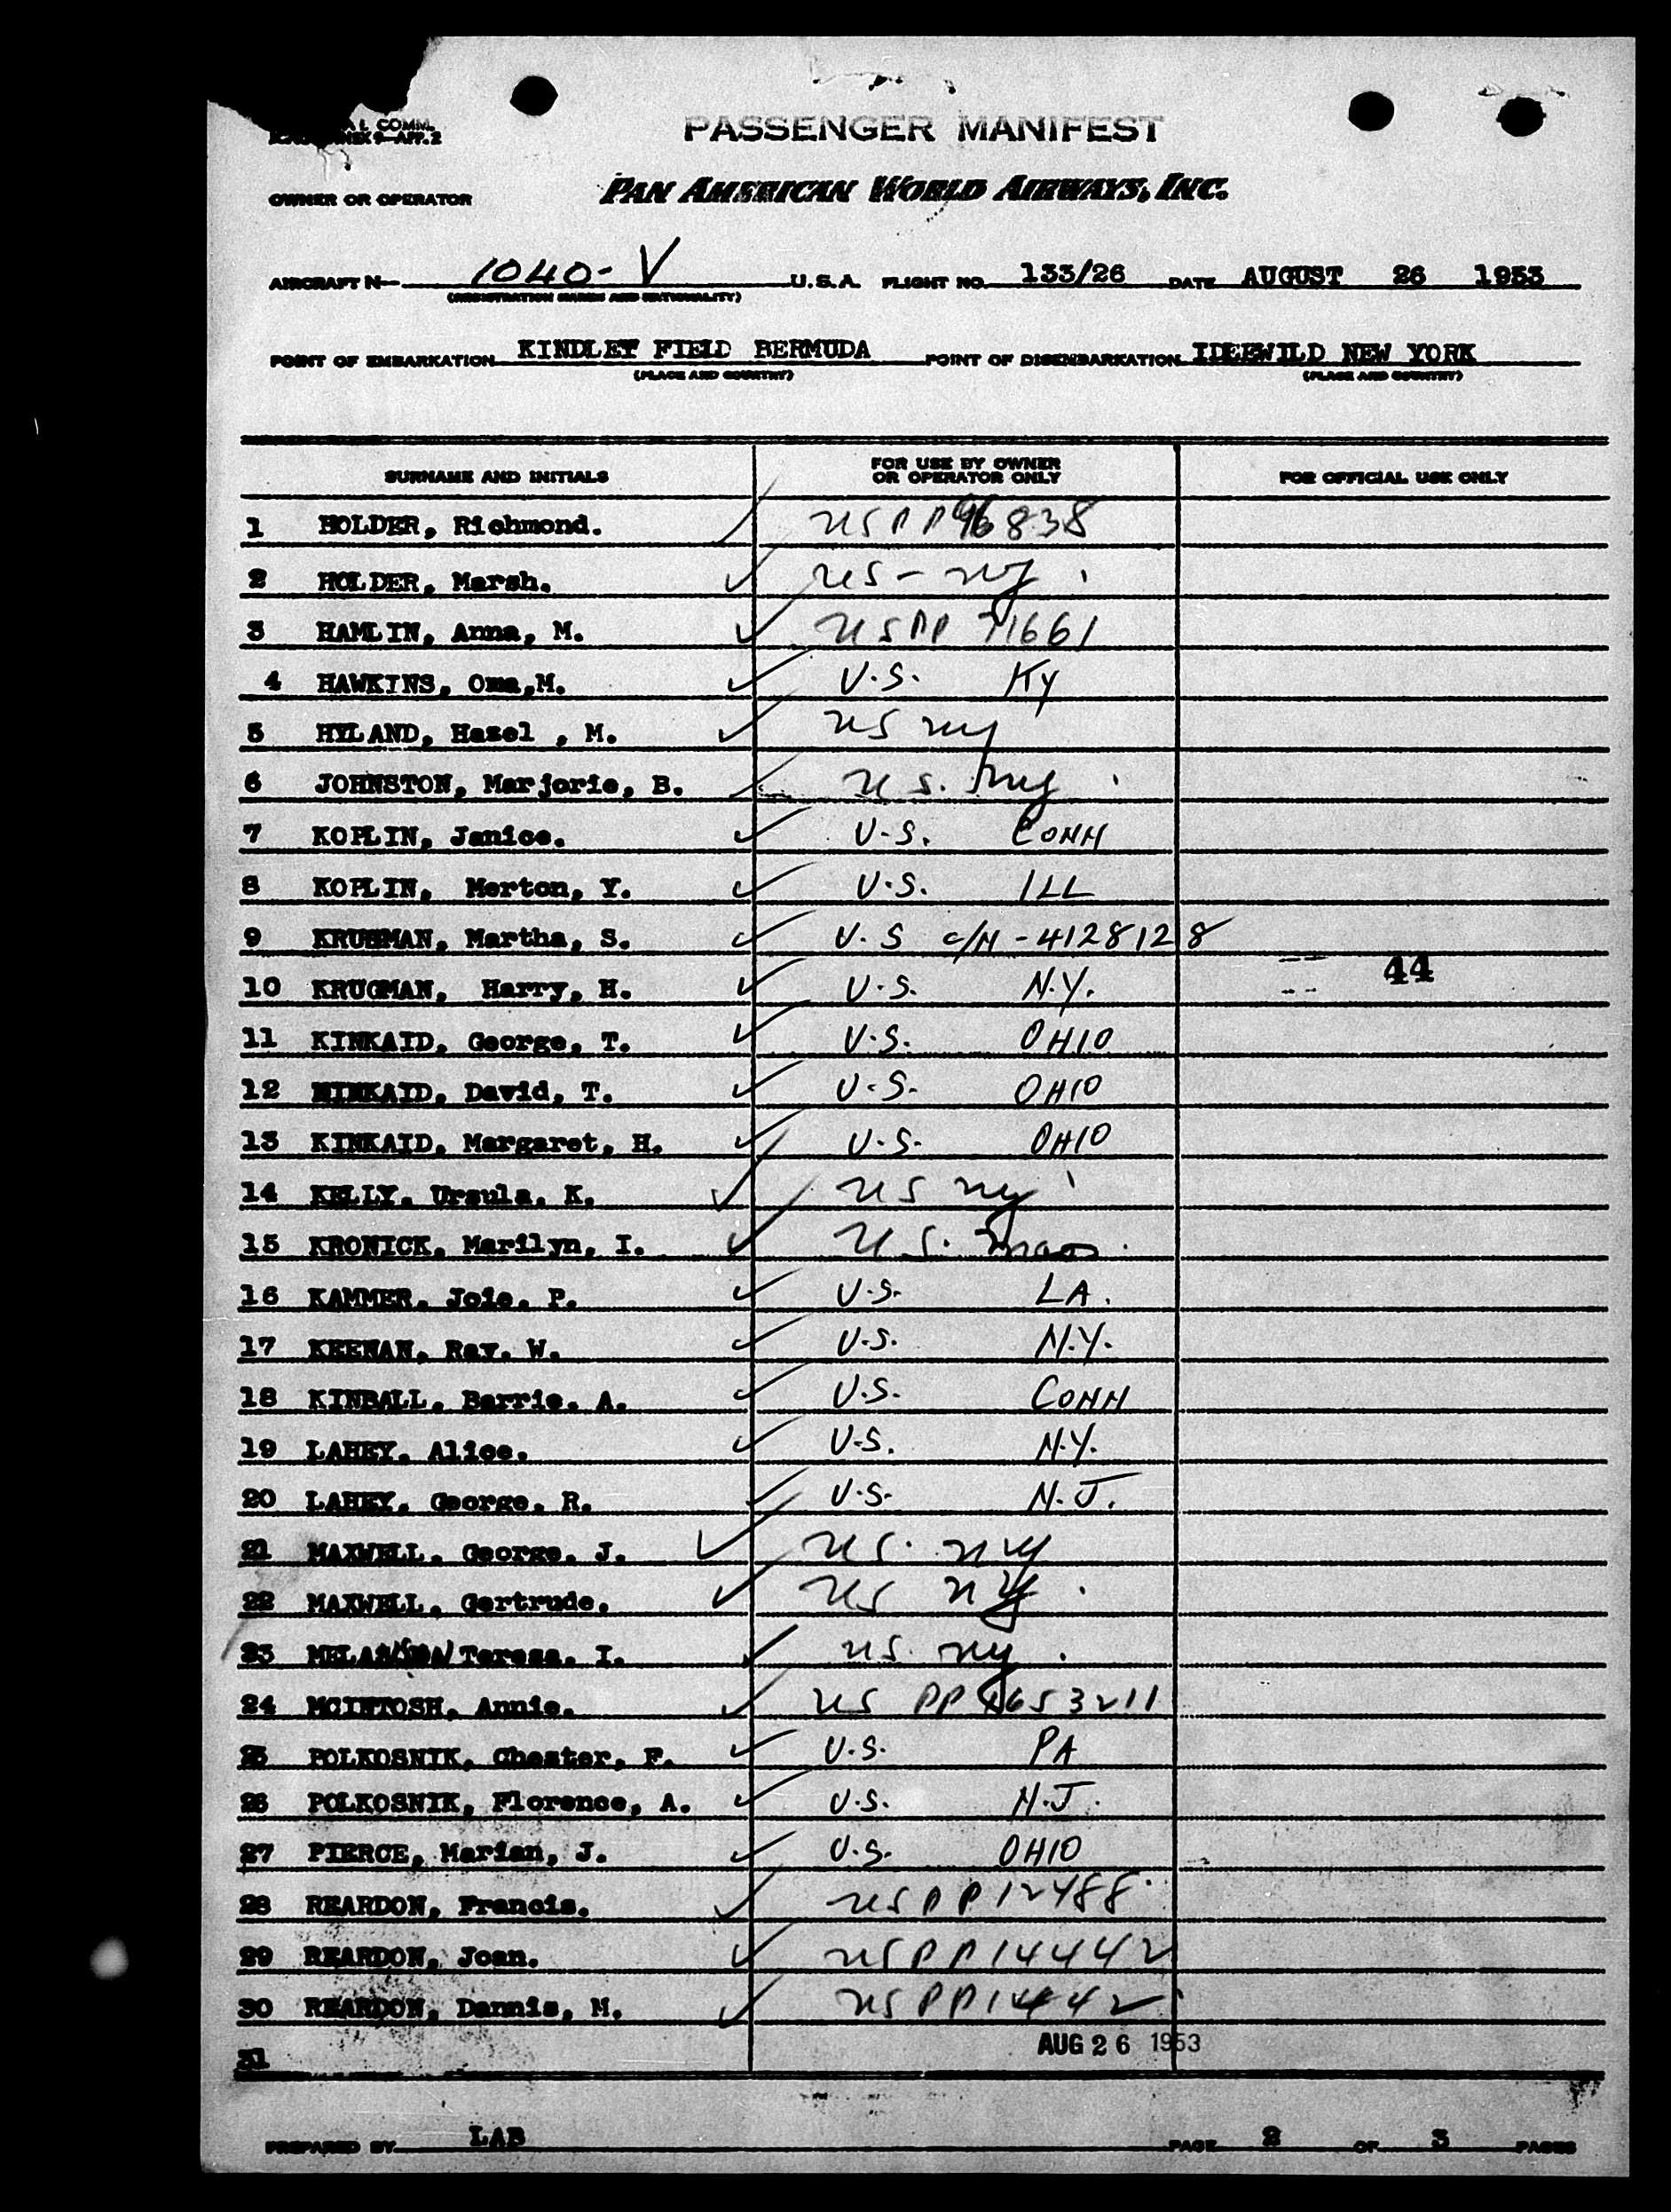 A L COMM.
NEX 9—APP. 2
PASSENGER MANIFEST
OWNER OR OPERATOR PAN AMERICAN WORLD AIRWAYS, INC.
AIRCRAFT N— 1040-V U.S.A. FLIGHT NO. 133/26 DATE AUGUST 26 1953
(REGISTRATION MARKS AND NATIONALITY)
POINT OF EMBARKATION KINDLEY FIELD BERMUDA POINT OF DISEMBARKATION IDEEWILD NEW YORK
(PLACE AND COUNTRY) (PLACE AND COUNTRY)
SURNAME AND INITIALS FOR USE BY OWNER OR OPERATOR ONLY FOR OFFICIAL USE ONLY
1 HOLDER, Richmond. US PP 96838
2 HOLDER, Marsh. US - NY
3 HAMLIN, Anna, M. US PP 71661
4 HAWKINS, Oma,M. U.S. KY
5 HYLAND, Hazel , M. US NY
6 JOHNSTON, Marjorie, B. U.S. NY
7 KOPLIN, Janice. U.S. CONN
8 KOPLIN, Merton, Y. U.S. ILL
9 KRUGMAN, Martha, S. U.S C/N-4128128
10 KRUGMAN, Harry, H. U.S. N.Y. 44
11 KINKAID, George, T. U.S. OHIO
12 KINKAID, David, T. U.S. OHIO
13 KINKAID, Margaret, H. U.S. OHIO
14 KELLY, Ursula, K. US NY
15 KRONICK, Marilyn, I. U.S. Mass.
16 KAMMER, Joie, P. U.S. LA.
17 KEENAN, Ray, W. U.S. N.Y.
18 KINBALL, Barrie, A. U.S. CONN
19 LAHEY, Alice. U.S. N.Y.
20 LAHEY, George, R. U.S. N.J.
21 MAXWELL, George, J. US. NY
22 MAXWELL, Gertrude. US NY
23 Teresa, I. US. NY
24 MCINTOSH, Annie. US PP
25 POLKOSNIK, Chester, F. U.S. PA
26 POLKOSNIK, Florence, A. U.S. N.J.
27 PIERCE, Marian, J. U.S. OHIO
28 REARDON, Francis. US PP 12488
29 REARDON, Joan. US PP 14442
30 REARDON, Dennis, M. US PP 14442
AUG 26 1953
31
PREPARED BY LAB PAGE 2 OF 3 PAGES